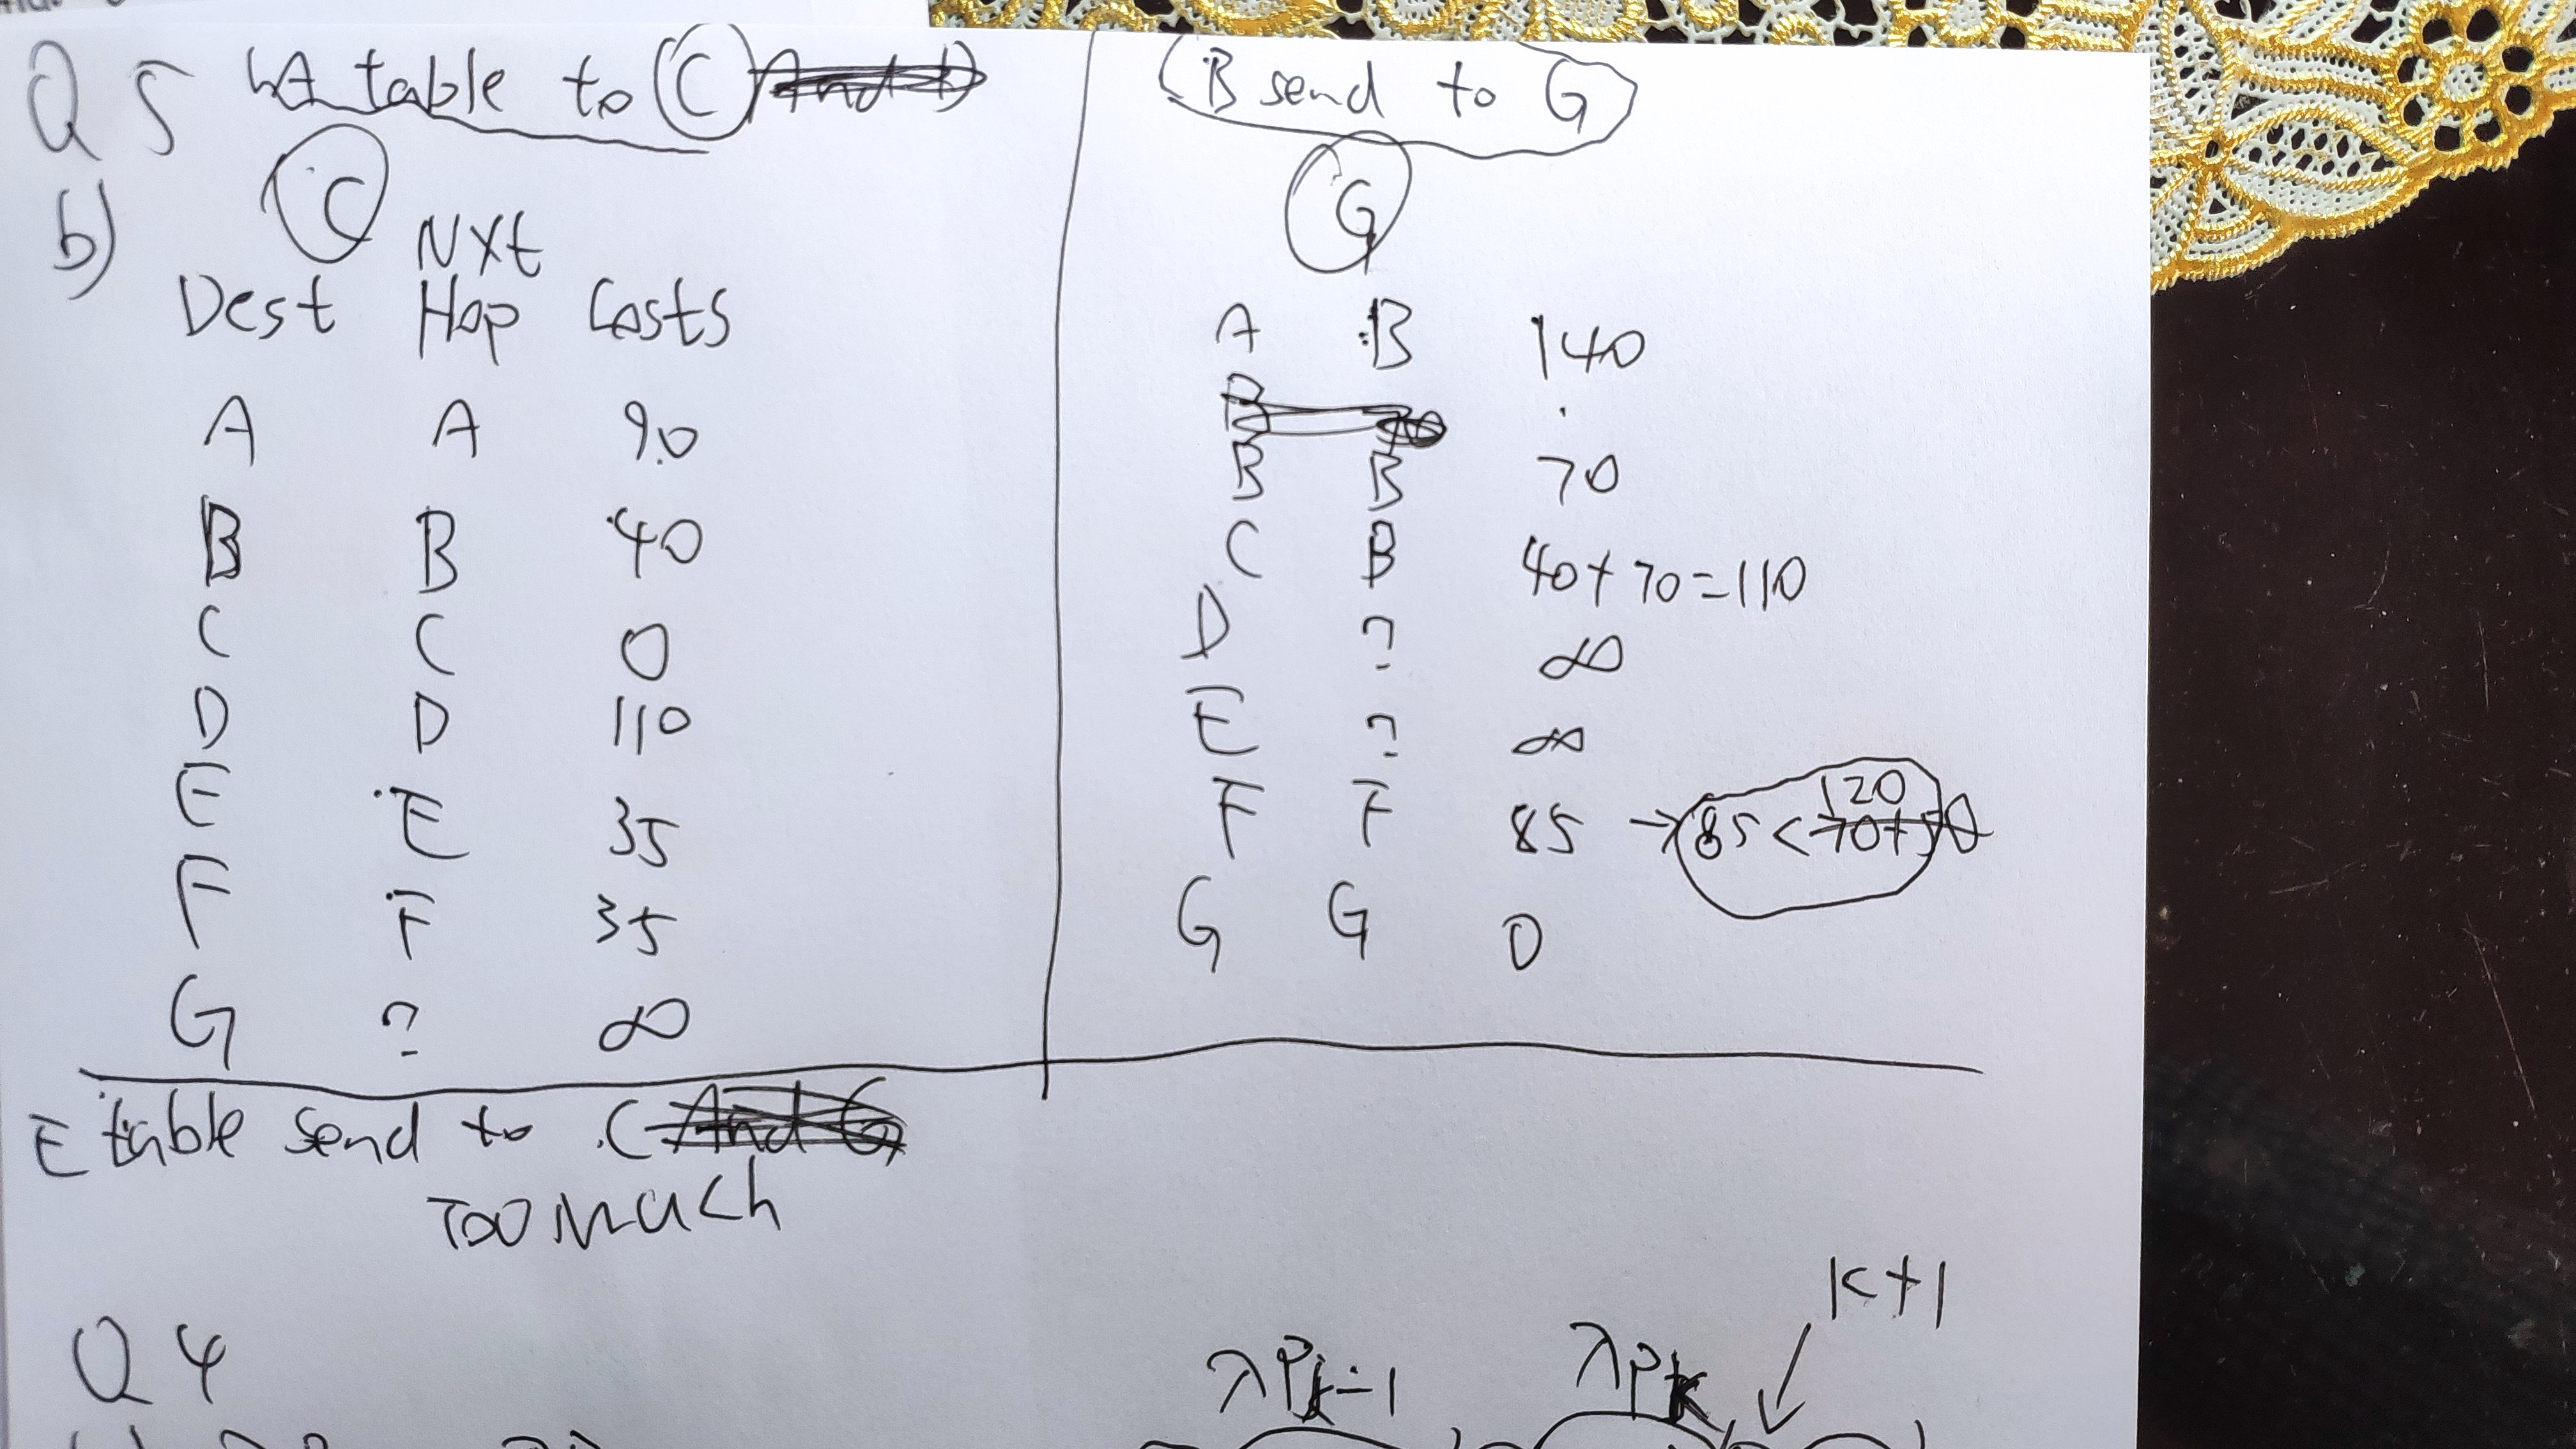 Q 5 A table to C
b)
C
Dest Nxt Hop Costs
A A 90
B B 40
C C 0
D D 110
E E 35
F F 35
G ? ∞
B send to G
G
A B 140
B B 70
C B 40+70=110
D ? ∞
E ? ∞
F F 85 → 85 < 120
G G 0
E table send to C
TOO MUCH
Q 4
K+1
λPk-1 λPk